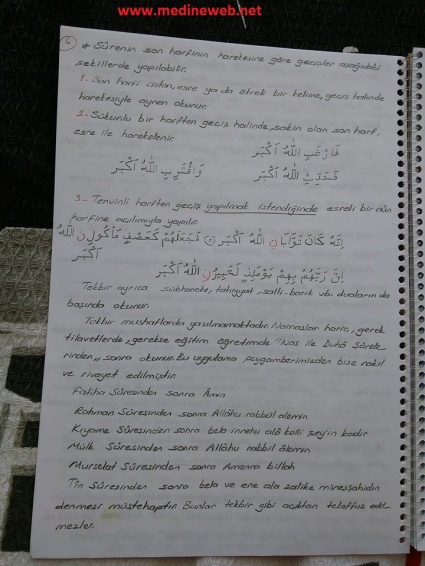 www.medineweb.net
6
* Sûrenin son harfinin harekesine göre geçişler aşağıdaki
şekillerde yapılabilir.
1- Son harfi üstün, esre ya da ötreli bir kelime, geçiş halinde
harekesiyle aynen okunur.
2- Sükunlu bir harften geçiş halinde, sakin olan son harf,
esre ile harekelenir.
فَارْغَبِ اللّٰهُ اَكْبَر
فَحَدِّثِ اللّٰهُ اَكْبَر وَاقْتَرِبِ اللّٰهُ اَكْبَر
3- Tenvinli harften geçiş yapılmak istendiğinde esreli bir nûn
harfine açılımıyla yapılır.
اِنَّهُ كَانَ تَوَّابَانِ اللّٰهُ اَكْبَر فَجَعَلَهُمْ كَعَصْفٍ مَأْكُولِنِ اللّٰهُ
اَكْبَر
اِنَّ رَبَّهُمْ بِهِمْ يَوْمَئِذٍ لَخَبِيرُنِ اللّٰهُ اَكْبَر
Tekbir ayrıca sübhaneke, tahiyyat, salli-barik vb. duaların da
başında okunur.
Tekbir mushaflarda yazılmamaktadır. Namazlar hariç, gerek
tilavetlerde, gerekse eğitim öğretimde "Nas ile Duhâ Sûrele-
rinden" sonra okunur. Bu uygulama peygamberimizden bize nakil
ve rivayet edilmiştir.
Fatiha Sûresinden sonra Âmin
Rahman Sûresinden sonra Allâhu rabbül alemin
Kıyame Sûresinden sonra bela innehu alâ külli şey'in kadir
Mülk Sûresinden sonra Allâhu rabbil âlemin
Murselat Sûresinden sonra Amenna billah
Tîn Sûresinden sonra bela ve ene ala zalike mineşşahidin
denmesi müstehaptır. Bunlar tekbir gibi açıktan telaffuz edil-
mezler.